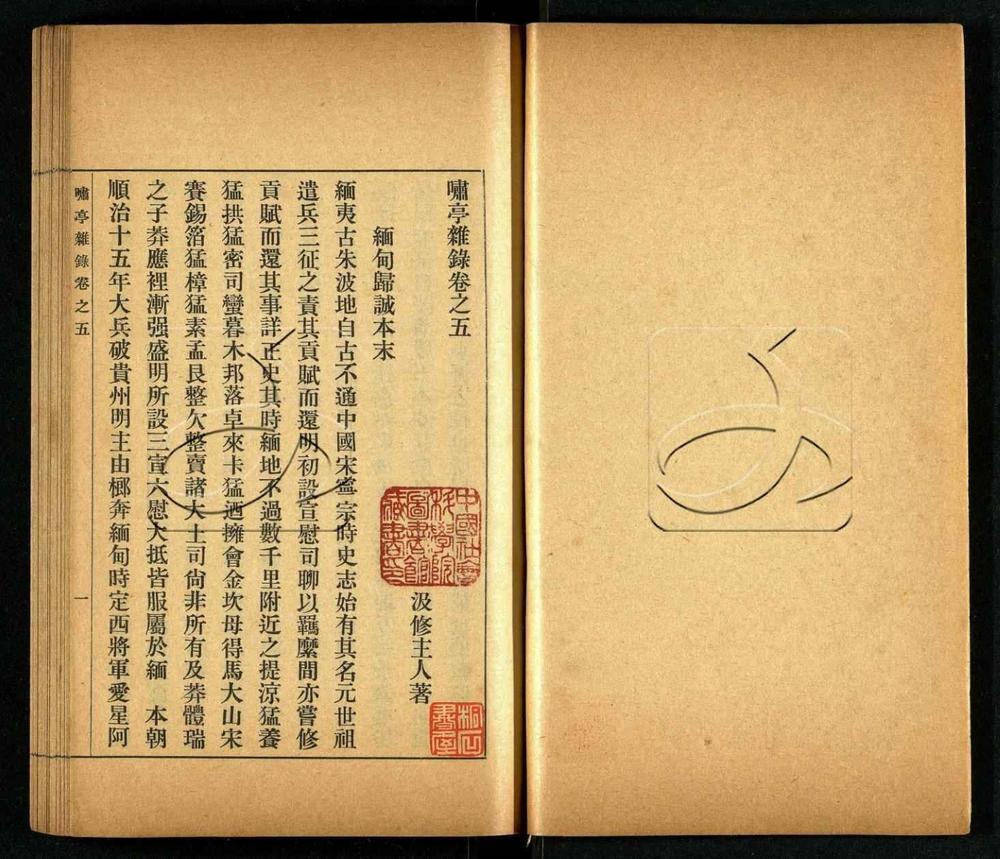 嘯亭雜錄卷之五
汲修主人著
緬甸歸誠本末
緬夷古朱波地自古不通中國宋寧宗時史志始有其名元世祖
遣兵三征之責其貢賦而還明初設宣慰司聊以羈縻間亦嘗修
貢賦而還其事詳正史其時緬地不過數千里附近之提涼猛養
猛拱猛密司蠻暮木邦落卓來卡猛迺擁會金坎母得馬大山宋
賽錫箔猛樟猛素孟艮整欠整賣諸大土司尙非所有及莽體瑞
之子莽應裡漸强盛明所設三宣六慰大抵皆服屬於緬　本朝
順治十五年大兵破貴州明主由榔奔緬甸時定西將軍愛星阿
嘯亭雜錄卷之五
一
中國社會
科學院
圖書館
藏書印
桐石
書屋